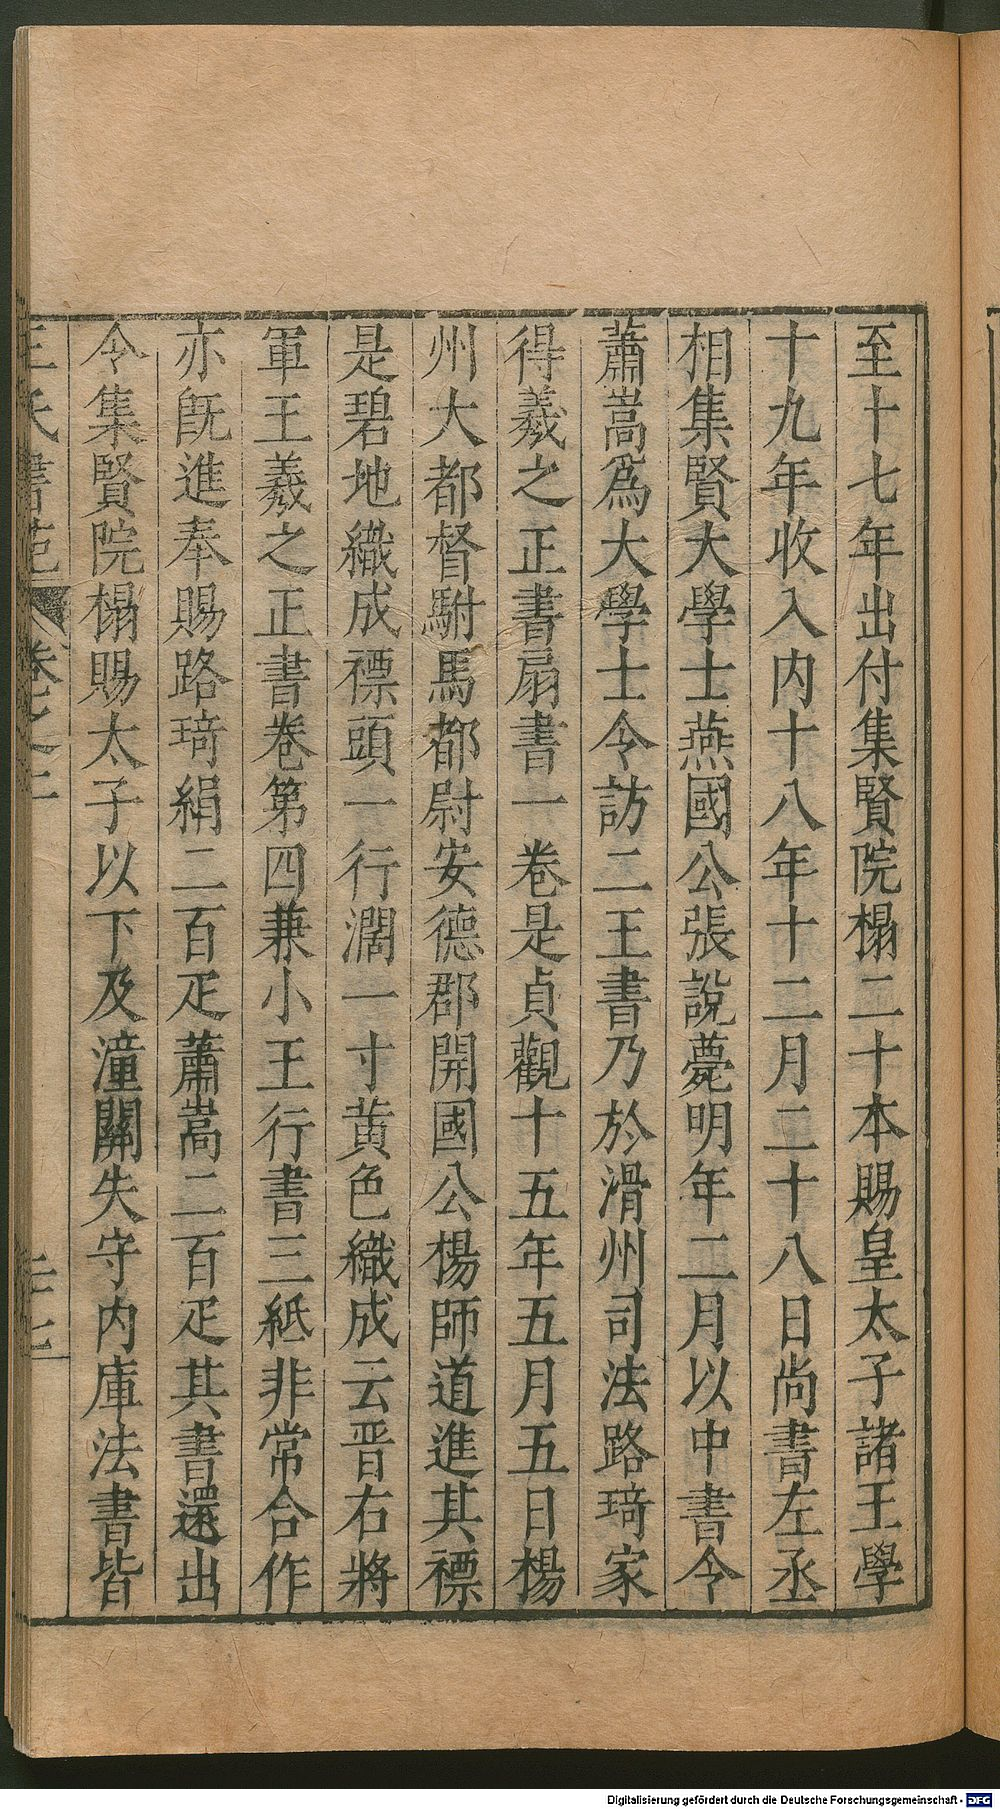 至十七年出付集賢院榻二十本賜皇太子諸王學
十九年收入内十八年十二月二十八日尚書左丞
相集賢大學士燕國公張說薨明年二月以中書令
蕭嵩爲大學士令訪二王書乃於滑州司法路琦家
得羲之正書扇書一卷是貞觀十五年五月五日楊
州大都督駙馬都尉安德郡開國公楊師道進其褾
是碧地織成褾頭一行濶一寸黄色織成云晋右將
軍王羲之正書卷第四兼小王行書三紙非常合作
亦旣進奉賜路琦絹二百疋蕭嵩二百疋其書還出
令集賢院榻賜太子以下及潼關失守内庫法書皆
王氏書苑 卷之二 二七
Digitalisierung gefördert durch die Deutsche Forschungsgemeinschaft - DFG